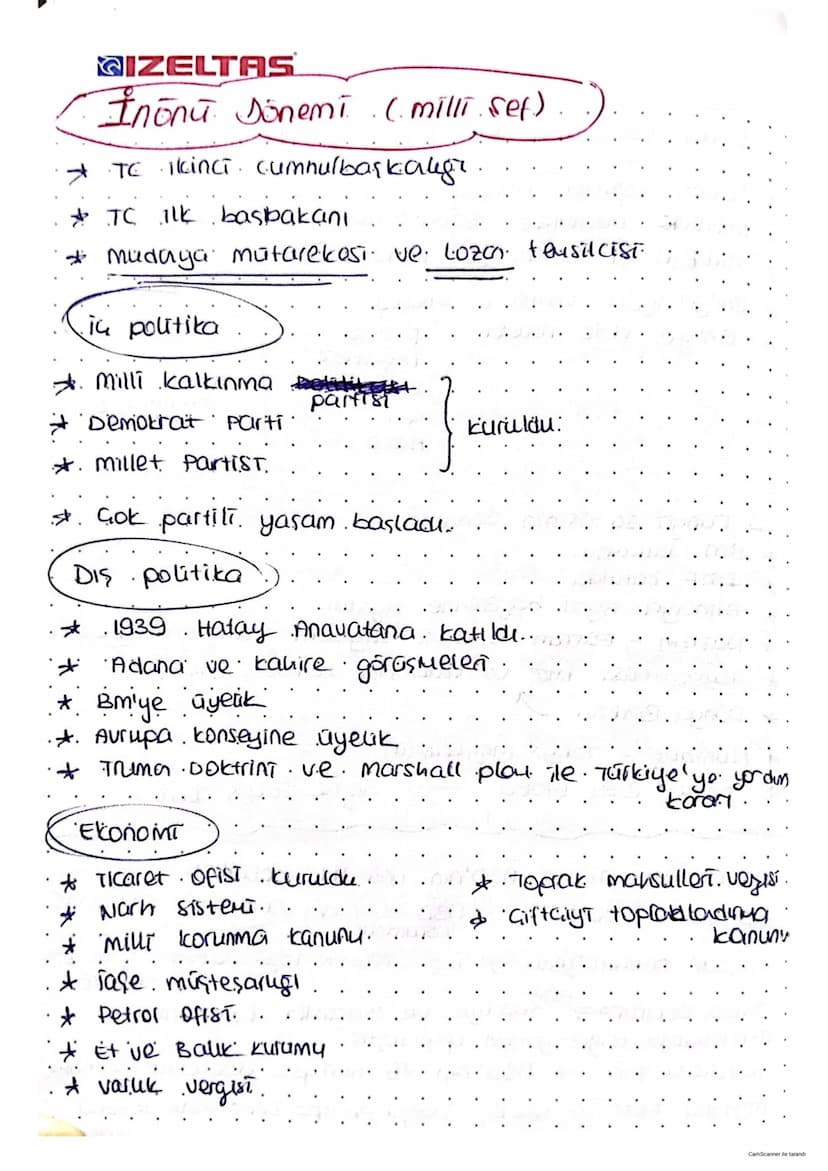 İZELTAŞ
İnönü Dönemi (milli şef)
TC ikinci cumhulbaşkalığı
TC ilk başbakanı
Mudanya mütarekesi ve Lozan temsilcisi
iç politika
milli kalkınma partisi
Demokrat Parti
millet Partisi
kuruldu.
Çok partili yaşam başladı.
Dış politika
1939 Hatay Anavatana katıldı.
Adana ve kahire görüşmeleri
Bm'ye üyelik
Avrupa konseyine üyelik
Truman Doktrini ve marshall planı ile Türkiye'ye yardım
kararı
Ekonomi
Ticaret ofisi kuruldu
Narh sistemi
milli korunma kanunu
İaşe müsteşarlığı
Petrol ofisi
Et ve Balık kurumu
varlık vergisi
Toprak mahsulleri vergisi
Çiftçiyi topraklandırma
kanunu
CamScanner ile tarandı